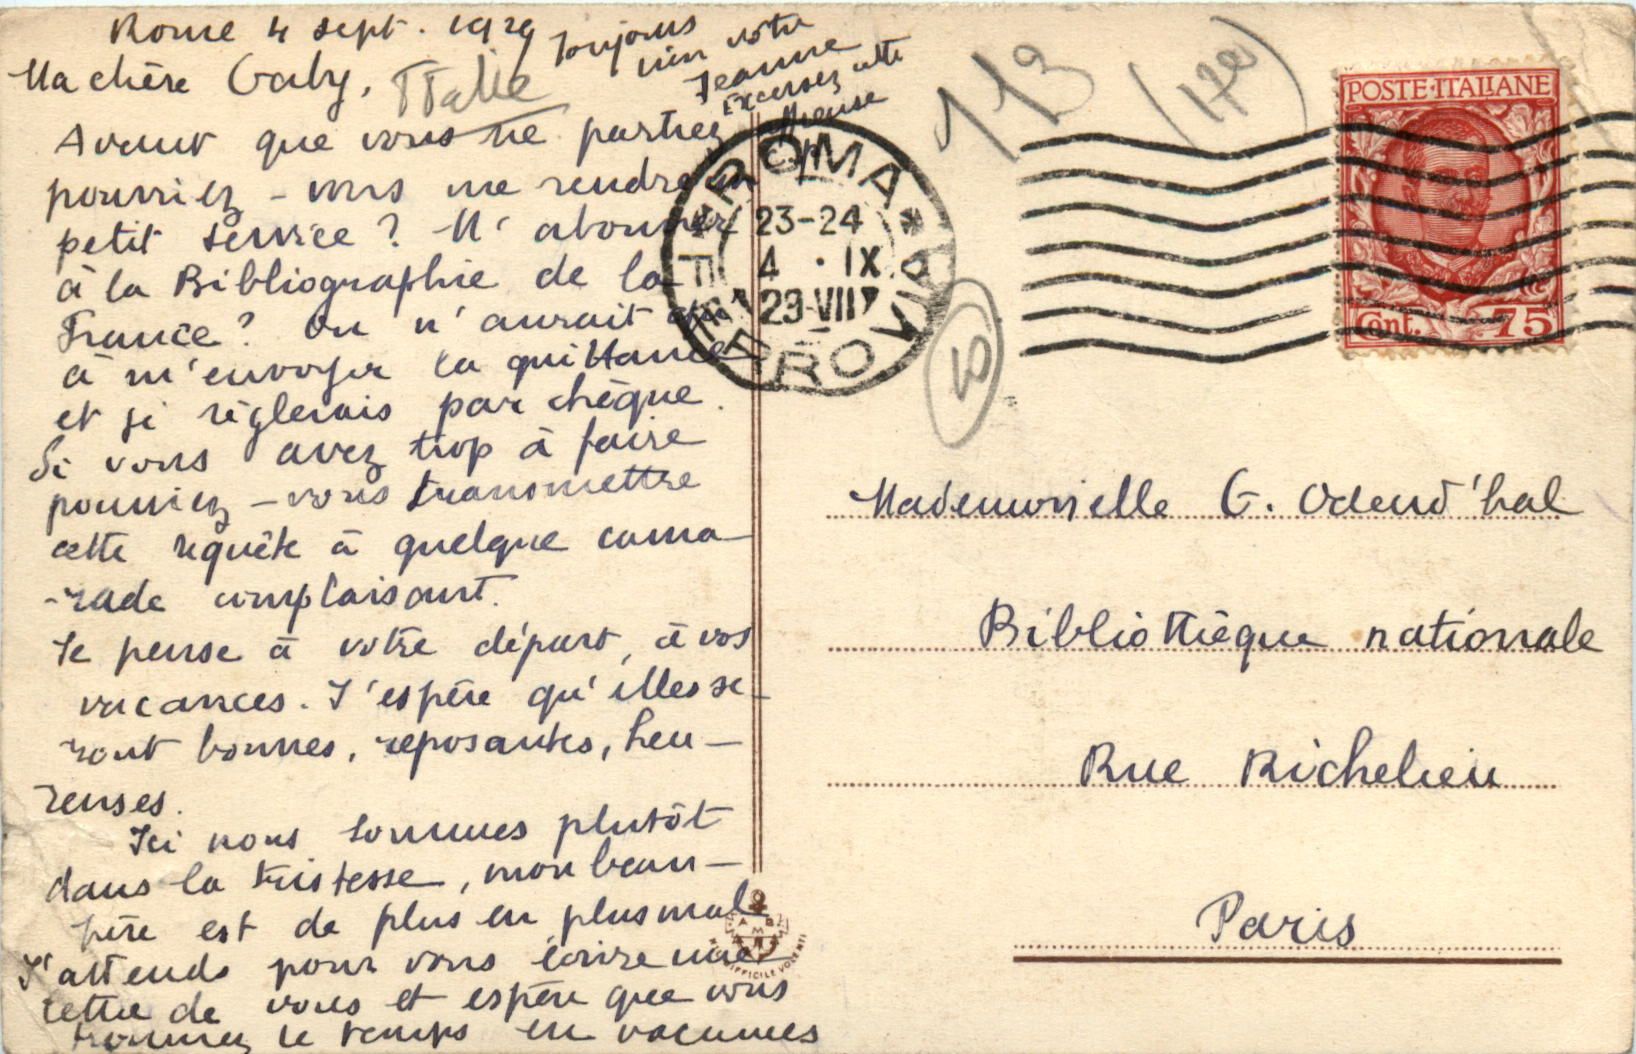 Rome 4 sept. 1929
Ma chère Gaby,
Italie
Avant que vous ne partiez
pourriez-vous me rendre un
petit service? M'abonner
à la Bibliographie de la
France? On n'aurait qu'
à m'envoyer la quittance
et je règlerais par chèque.
Si vous avez trop à faire
pourriez-vous transmettre
cette requête à quelque cama-
-rade complaisant.
Je pense à votre départ, à vos
vacances. J'espère qu'elles se-
ront bonnes, reposantes, heu-
reuses.
Ici nous sommes plutôt
dans la tristesse, mon beau-
père est de plus en plus mal
J'attends pour vous écrire une
lettre de vous et espère que vous
trouviez le temps en vacances
Toujours
bien votre
Jeanne
Excusez cette
113
(170)
ROMA
FERROVIA
23-24
4 · IX
29-VII
10
POSTE·ITALIANE
Cent. 75
Mademoiselle G. Odend'hal
Bibliothèque nationale
Rue Richelieu
Paris